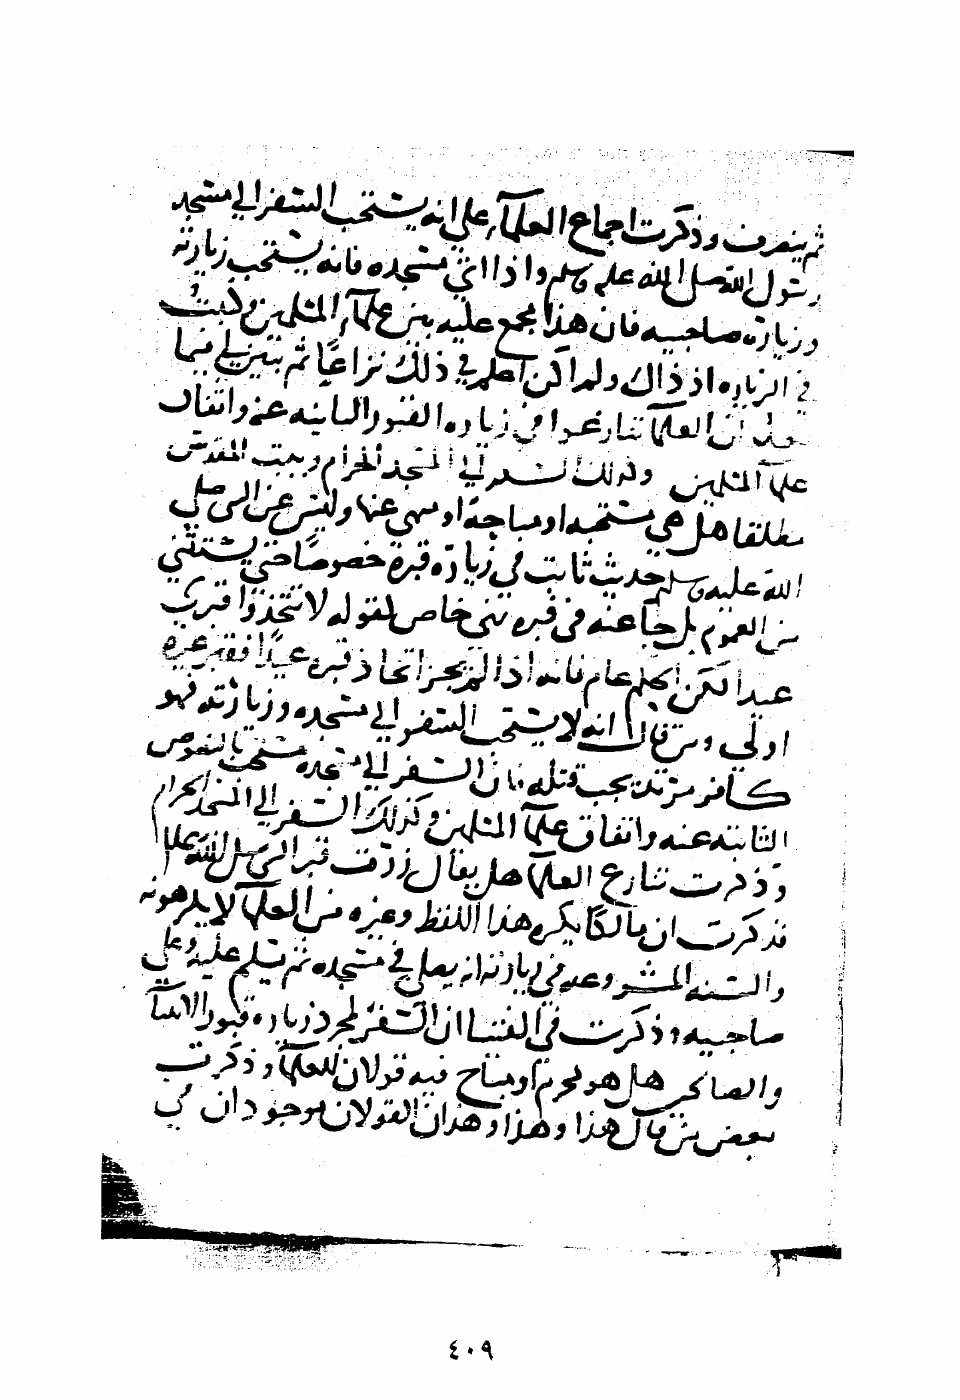 ثم ينصرف وذكرت اجماع العلماء على انه يستحب السفر الي مسجد
رسول الله صلى الله عليه وسلم واذا اتي مسجده فانه يستحب زيارته
وزيارة صاحبيه فان هذا مجمع عليه بين علماء المسلمين وكنبت
في الزياره اذ ذاك ولم اكن اعلم في ذلك نزاعًا ثم تبين لي فيما
بعد ان العلماء تنازعوا في زياره القبور الثابته عنه واتفاق
علماء المسلمين وكذلك السفر الي المسجد الحرام وبيت المقدس
مطلقا هل هي مستحبه او مباحة او منهي عنها وليس عن النبي صلى
الله عليه وسلم حديث ثابت في زيارة قبره خصوصًا حتي يستثني
من العموم بل جا عنه في قبره نهي خاص لقوله لا تتخذوا قبري
عيدا لكن الحكم عام فانه اذا لم يجز اتخاذ قبره عيدًا فقبر غيره
اولي ومن قال انه لا يستحب السفر الي مسجده وزيارته فهو
كافر مرتد يجب قتله فان السفر الي مسجده مستحب بالنصوص
الثابته عنه واتفاق علماء المسلمين وكذلك السفر الي المسجد الحرام
وذكرت تنازع العلماء هل يقال زرت قبر النبي صلى الله عليه
فذكرت ان مالكا يكره هذا اللفظ وغيره من العلماء لا يكرهونه
والسنه المشروعه في زيارته ان يصلي في مسجده ثم يسلم عليه وعلي
صاحبيه وذكرت في الفتيا ان السفر لمجرد زياره قبور الانبيا
والصالحين هل هو محرم او مباح فيه قولان للعلماء وذكرت
بعض من قال هذا وهذا وهذان القولان موجودان في
٤٠٩